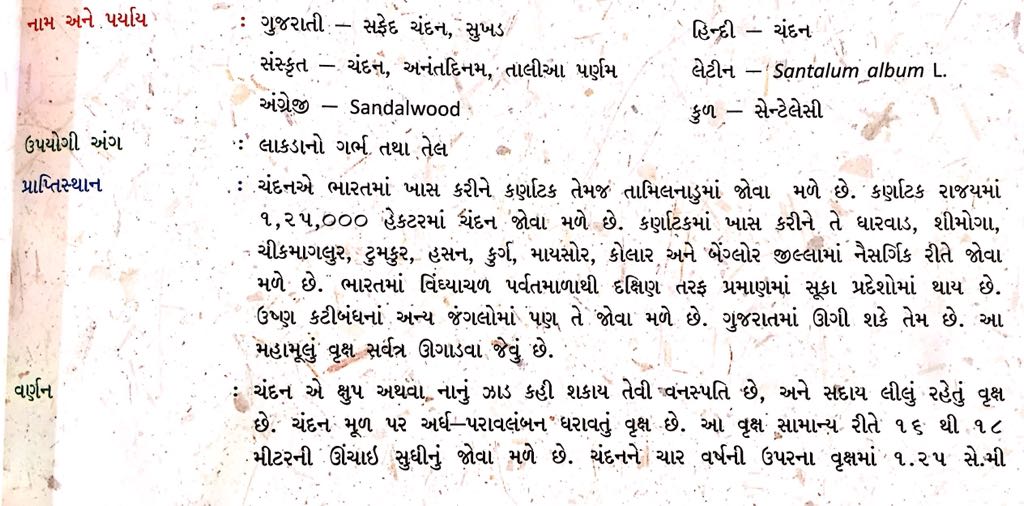 નામ અને પર્યાય : ગુજરાતી – સફેદ ચંદન, સુખડ હિન્દી – ચંદન
સંસ્કૃત – ચંદન, અનંતદિનમ, તાલીઆ પર્ણમ લેટીન – Santalum album L.
અંગ્રેજી – Sandalwood કુળ – સેન્ટેલેસી
ઉપયોગી અંગ : લાકડાનો ગર્ભ તથા તેલ
પ્રાપ્તિસ્થાન : ચંદનએ ભારતમાં ખાસ કરીને કર્ણાટક તેમજ તામિલનાડુમાં જોવા મળે છે. કર્ણાટક રાજયમાં
૧,૨૫,૦૦૦ હેકટરમાં ચંદન જોવા મળે છે. કર્ણાટકમાં ખાસ કરીને તે ધારવાડ, શીમોગા,
ચીકમાગલુર, ટુમકુર, હસન, કુર્ગ, માયસોર, કોલાર અને બેંગ્લોર જીલ્લામાં નૈસર્ગિક રીતે જોવા
મળે છે. ભારતમાં વિંધ્યાચળ પર્વતમાળાથી દક્ષિણ તરફ પ્રમાણમાં સૂકા પ્રદેશોમાં થાય છે.
ઉષ્ણ કટીબંધનાં અન્ય જંગલોમાં પણ તે જોવા મળે છે. ગુજરાતમાં ઊગી શકે તેમ છે. આ
મહામૂલું વૃક્ષ સર્વત્ર ઊગાડવા જેવું છે.
વર્ણન : ચંદન એ ક્ષુપ અથવા નાનું ઝાડ કહી શકાય તેવી વનસ્પતિ છે, અને સદાય લીલું રહેતું વૃક્ષ
છે. ચંદન મૂળ પર અર્ધ–પરાવલંબન ધરાવતું વૃક્ષ છે. આ વૃક્ષ સામાન્ય રીતે ૧૬ થી ૧૮
મીટરની ઊંચાઇ સુધીનું જોવા મળે છે. ચંદનને ચાર વર્ષની ઉપરના વૃક્ષમાં ૧.૨૫ સે.મી